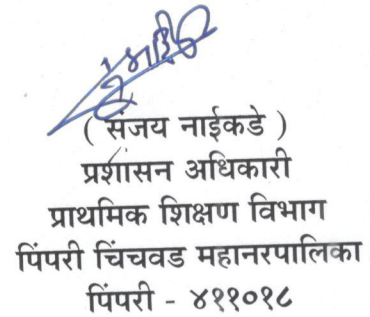 ( संजय नाईकडे )
प्रशासन अधिकारी
प्राथमिक शिक्षण विभाग
पिंपरी चिंचवड महानरपालिका
पिंपरी - ४११०१८